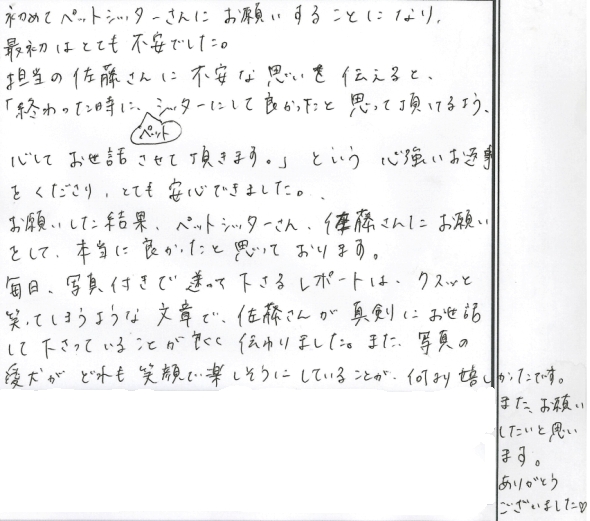 初めてペットシッターさんにお願いすることになり、
最初はとても不安でした。
担当の佐藤さんに不安な思いを伝えると、
「終わった時に、シッターにして良かったと思って頂けるよう、
ペット
心してお世話させて頂きます。」という心強いお返事
をくださり、とても安心できました。
お願いした結果、ペットシッターさん、佐藤さんにお願い
をして、本当に良かったと思っております。
毎日、写真付きで送って下さるレポートは、クスッと
笑ってしまうような文章で、佐藤さんが真剣にお世話
して下さっていることが良く伝わりました。また、写真の
愛犬がどれも笑顔で楽しそうにしていることが、何より嬉しかったです。
また、お願い
したいと思い
ます。
ありがとう
ございました♡